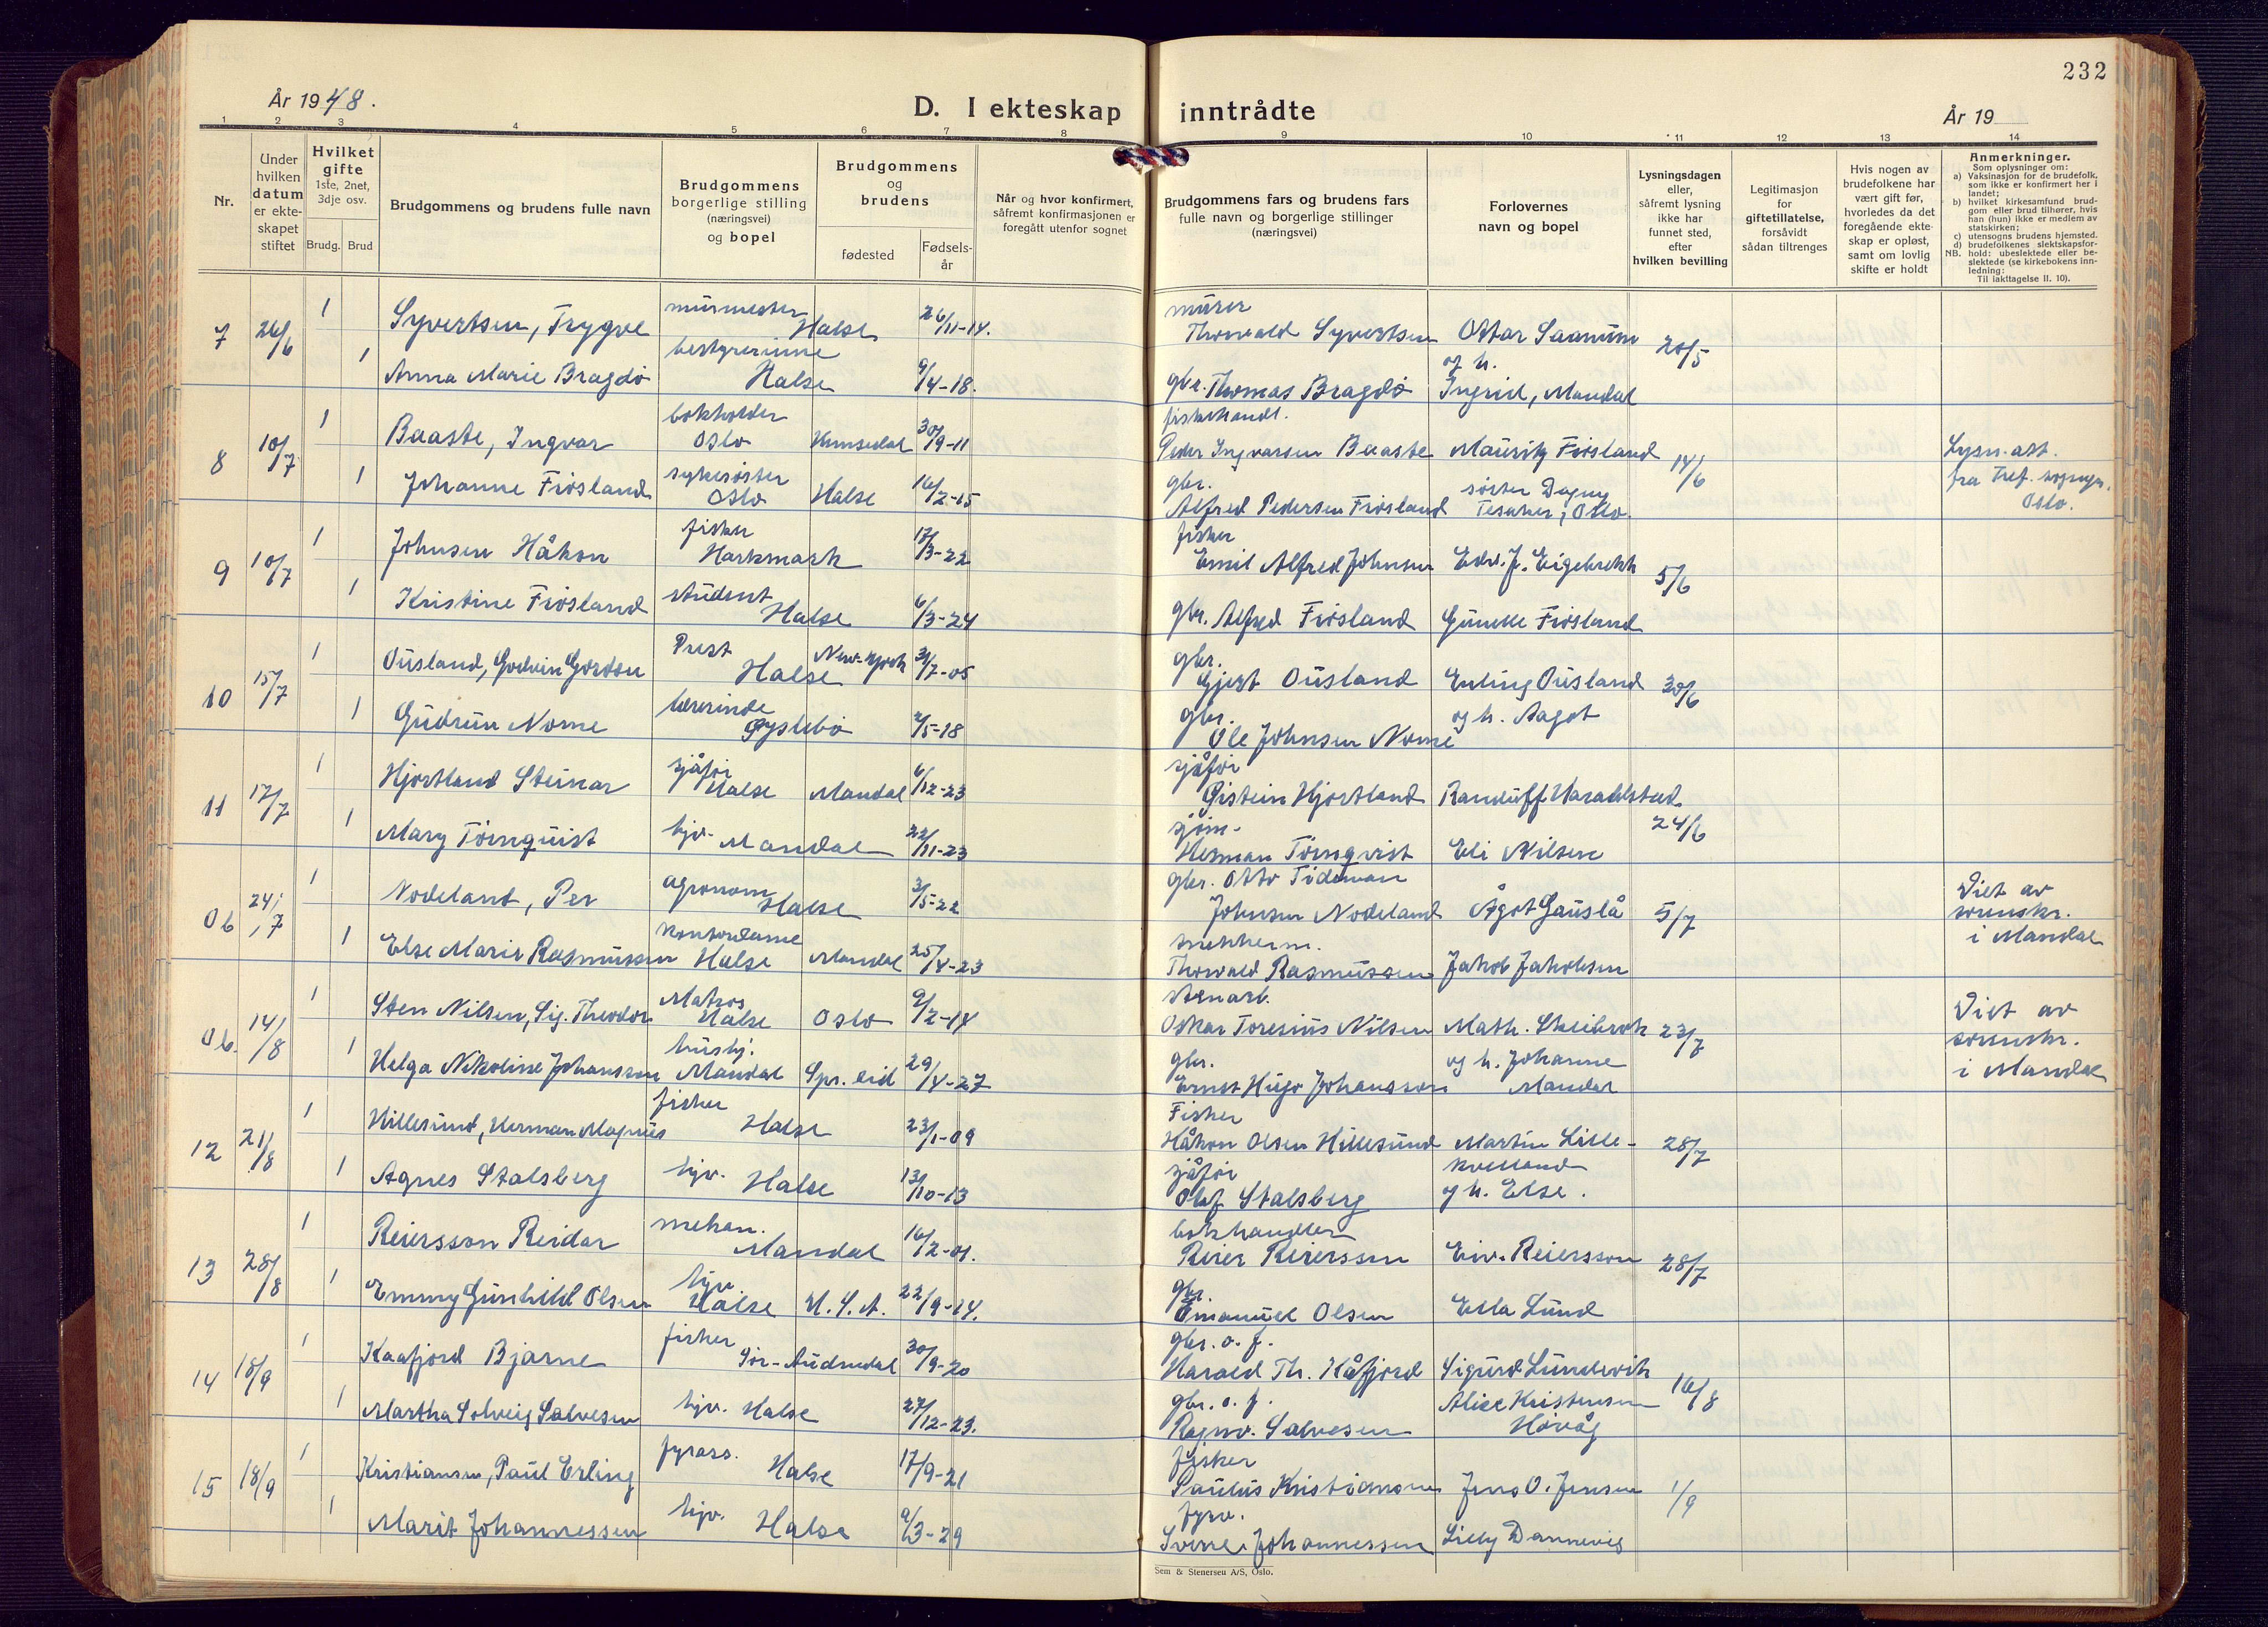 232
År 1948.
D. I ekteskap inntrådte
År 19
1 2 3 4 5 6 7 8 9 10 11 12 13 14
Nr.
Under hvilken datum er ekteskapet stiftet
Hvilket gifte
1ste, 2net, 3dje osv.
Brudg. Brud
Brudgommens og brudens fulle navn
Brudgommens borgerlige stilling (næringsvei) og bopel
Brudgommens og brudens
fødested
Fødsels-år
Når og hvor konfirmert, såfremt konfirmasjonen er foregått utenfor sognet
Brudgommens fars og brudens fars fulle navn og borgerlige stillinger (næringsvei)
Forlovernes navn og bopel
Lysningsdagen eller, såfremt lysning ikke har funnet sted, efter hvilken bevilling
Legitimasjon for giftetillatelse, forsåvidt sådan tiltrenges
Hvis nogen av brudefolkene har vært gift før, hvorledes da det foregående ekteskap er opløst, samt om lovlig skifte er holdt
Anmerkninger.
Som oplysninger om:
a) Vaksinasjon for de brudefolk, som ikke er konfirmert her i landet;
b) hvilket kirkesamfund brudgom eller brud tilhører, hvis han (hun) ikke er medlem av statskirken;
c) utensogns brudens hjemsted.
d) brudefolkenes slektskapsforhold: ubeslektede eller beslektede (se kirkebokens innledning:
NB. Til iakttagelse II. 10).
7 26/6 1 Syvertsen, Trygve murmester Halse 26/11-14. murer Thorvald Syvertsen Ottar Saanum og h. 20/5
1 Anna Marie Bragdø bestyrerinne Halse 9/4-18. gbr. Thomas Bragdø Ingrid, Mandal
8 10/7 1 Baaste, Ingvar bokholder Oslo 30/9-11 fiskehandl. Peder Ingvarsen Baaste Mauritz Fiøsland 14/6 Lysn. att. fra Oslo.
1 Johanne Fiøsland sykesøster Oslo Halse 16/2-15 gbr. Alfred Pedersen Fiøsland søster Dagny Tesaker, Oslo.
9 10/7 1 Johnsen Håkon fisker Harkmark 17/3-22 fisker Emil Alfred Johnsen Edv. J. Eigebrekk 5/6
1 Kristine Fiøsland student Halse 6/3-24 gbr. Alfred Fiøsland Fiøsland
10 15/7 1 Ousland, Godvin Gordon Prest Halse New-York 31/7-05 gbr. Gjert Ousland Erling Ousland 30/6
1 Gudrun Nome lærerinde Øyslebø 2/5-18 gbr. Ole Johnsen Nome og h. Aagot
11 17/7 1 Hjortland Steinar sjåfør Halse Mandal 6/12-23 sjåfør Øistein Hjortland Randulf Haraldstad 24/6
1 Mary Törnquist hjv. Mandal 22/11-23 sjøm. Herman Törnqvist Eli Nilsen
0b 24/7 1 Nodeland, Per agronom Halse 3/5-22 gbr. Otto Tideman Johnsen Nodeland Ågot Gauslå 5/7 Viet av sorenskr. i Mandal
1 Else Marie Rasmussen kontordame Halse Mandal 25/4-23 snekkerm. Thorvald Rasmussen Jakob Jakobsen
0b. 14/8 1 Sten Nilsen, Sig. Theodor Matros Halse Oslo 9/2-14 stenarb. Oskar Toresius Nilsen Math. Skeibrok 23/7 Viet av sorenskr. i Mandal
1 Helga Nikoline Johansson hushj. Mandal Spr. eid 29/4-27 gbr. Ernst Hugo Johansson og h. Johanne Mandal
12 21/8 1 Hillesund, Herman Magnus fisker Halse 23/1-09 Fisker Håkon Olsen Hillesund Martin Lille-kvelland 28/7
1 Agnes Stalsberg hjv. Halse 13/10-13 sjåfør Olaf Stalsberg og h. Else.
13 28/8 1 Reiersson Reidar mekan. Mandal 16/2-01. bokhandler Reier Reiersson Eiv. Reiersson 28/7
1 Emmy Gunhild Olsen hjv. Halse U.S.A. 22/9-14. gbr. Emanuel Olsen Ella Lund
14 18/9 1 Kaafjord Bjarne fisker Sør-Audnedal 30/9-20 gbr. o. f. Harald Th. Kåfjord Sigurd Lundevik 16/8
1 Martha Solveig Salvesen hjv. Halse 27/12-23. gbr. o. f. Ragnv. Salvesen Alice Kristensen Høvåg
15 18/9 1 Kristiansen, Paul Erling fyrass. Halse 17/9-21 fisker Paulus Kristiansen Jens O. Jensen 1/9
1 Marit Johannessen hjv. Halse 9/3-29 fyrv. Sverre Johannessen Lilly Dannevig
Sem & Stenersen A/S, Oslo.